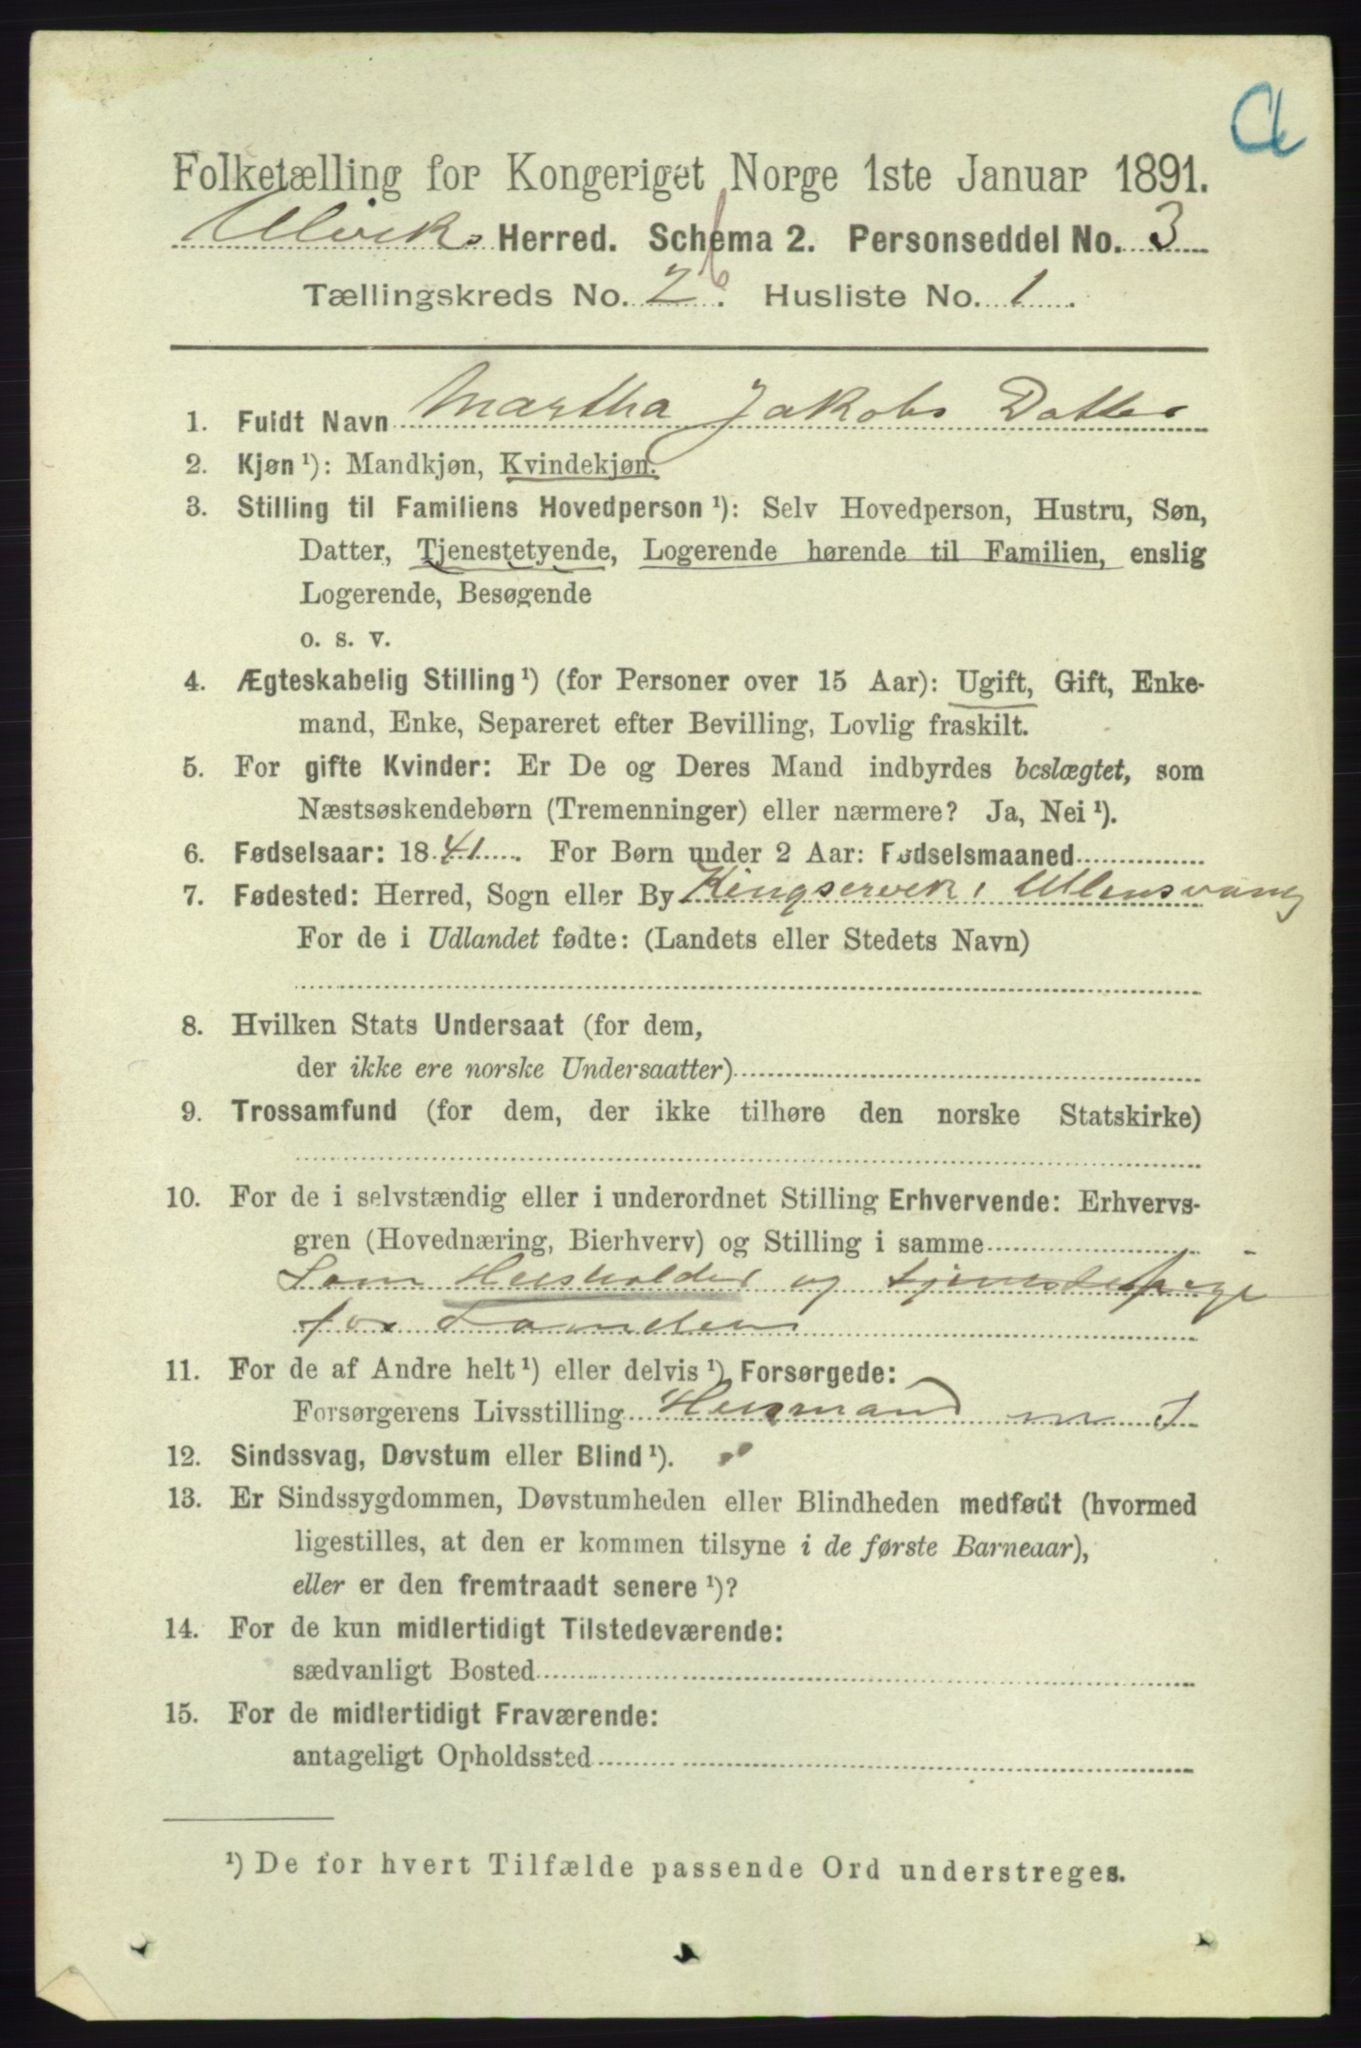 Cl
Folketælling for Kongeriget Norge 1ste Januar 1891.
Ulvik Herred. Schema 2. Personseddel No. 3
Tællingskreds No. 2 b. Husliste No. 1.
1. Fuldt Navn Martha Jakobs Datter
2. Kjøn ¹): Mandkjøn, Kvindekjøn.
3. Stilling til Familiens Hovedperson ¹): Selv Hovedperson, Hustru, Søn,
Datter, Tjenestetyende, Logerende hørende til Familien, enslig
Logerende, Besøgende
o. s. v.
4. Ægteskabelig Stilling ¹) (for Personer over 15 Aar): Ugift, Gift, Enke-
mand, Enke, Separeret efter Bevilling, Lovlig fraskilt.
5. For gifte Kvinder: Er De og Deres Mand indbyrdes beslægtet, som
Næstsøskendebørn (Tremenninger) eller nærmere? Ja, Nei ¹).
6. Fødselsaar: 1841. For Børn under 2 Aar: Fødselsmaaned
7. Fødested: Herred, Sogn eller By Kingservik, Ullensvang
For de i Udlandet fødte: (Landets eller Stedets Navn)
8. Hvilken Stats Undersaat (for dem,
der ikke ere norske Undersaatter)
9. Trossamfund (for dem, der ikke tilhøre den norske Statskirke)
10. For de i selvstændig eller i underordnet Stilling Erhvervende: Erhvervs-
gren (Hovednæring, Bierhverv) og Stilling i samme
Som Husholder og tjenestepige
for
11. For de af Andre helt ¹) eller delvis ¹) Forsørgede:
Forsørgerens Livsstilling Husmand m J
12. Sindssvag, Døvstum eller Blind ¹).
13. Er Sindssygdommen, Døvstumheden eller Blindheden medfødt (hvormed
ligestilles, at den er kommen tilsyne i de første Barneaar),
eller er den fremtraadt senere ¹)?
14. For de kun midlertidigt Tilstedeværende:
sædvanligt Bosted
15. For de midlertidigt Fraværende:
antageligt Opholdssted
¹) De for hvert Tilfælde passende Ord understreges.